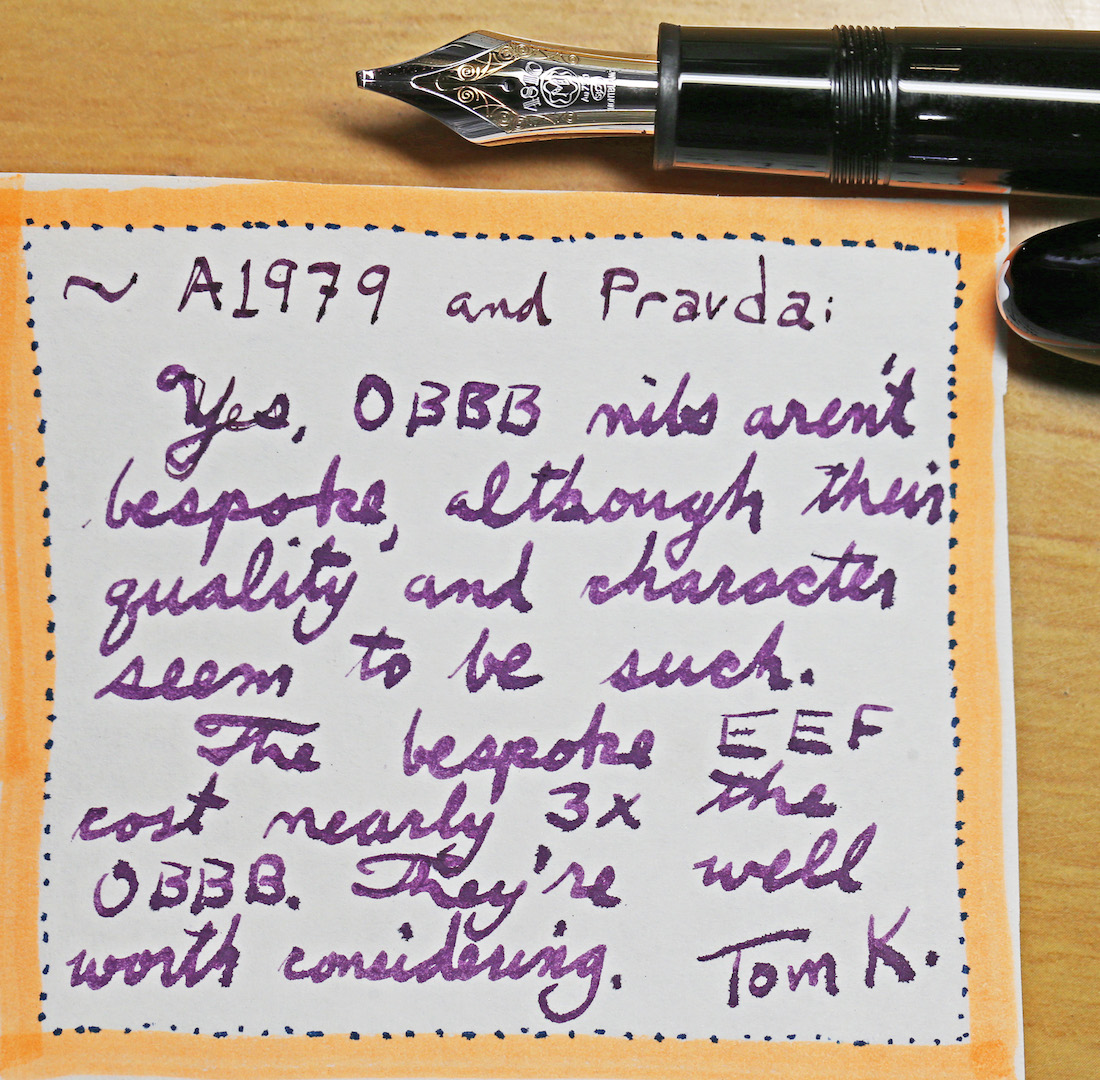 ~ A1979 and Pravda:
Yes, OBBB nibs aren't
bespoke, although their
quality and character
seem to be such.
The bespoke EEF
cost nearly 3x the
OBBB. They're well
worth considering. Tom K.